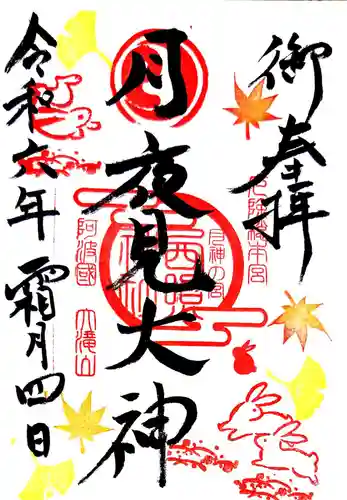 御奉拝
月夜見大神
令和六年霜月四日
月神の宮
阿波國 大滝山